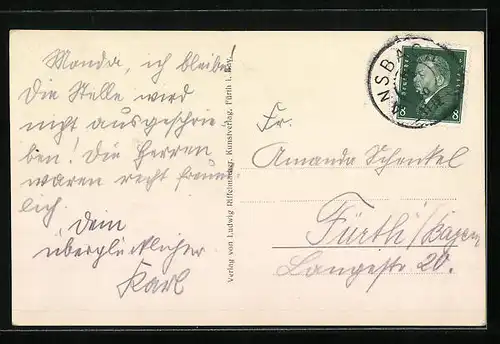 Manda, ich bleibe!
Die Stelle wird
nicht ausgeschrie-
ben! Die Herren
waren recht freund-
lich.
Dein
überglücklicher
Karl
Verlag von Ludwig Riffelmacher, Kunstverlag, Fürth i. Bay.
ANSBA
8 8
Fr.
Amanda Schenkel
Fürth/Bayern
Langestr 20.